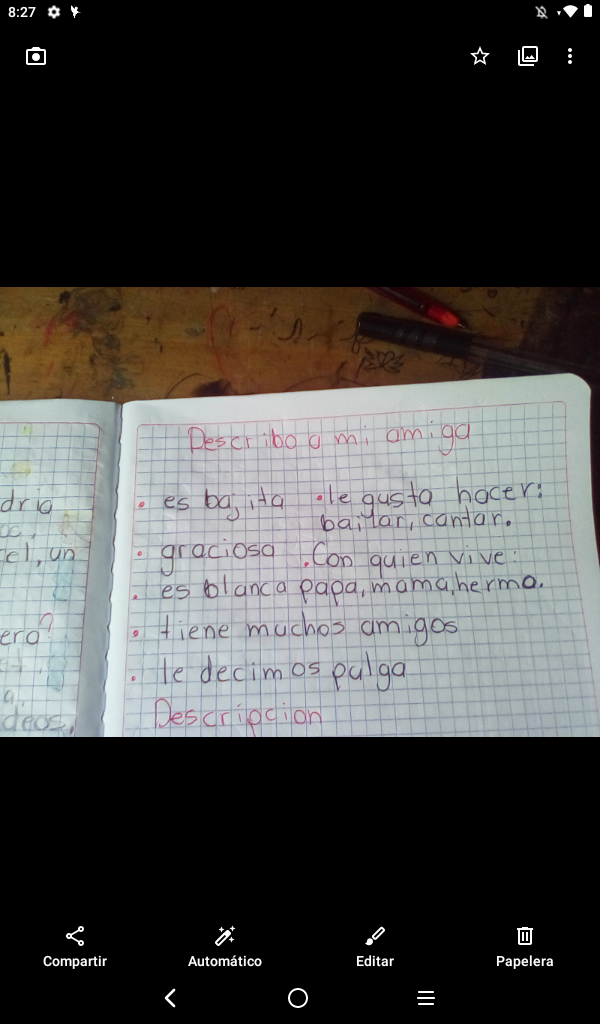 8:27
dria
cel, un
ero?
a.
deos.
Describo a mi amiga
• es bajita •le gusta hacer:
bailar, cantar.
• graciosa .Con quien vive:
. es blanca papa, mama, hermo.
• tiene muchos amigos
. le decimos pulga
Descripcion
Compartir Automático Editar Papelera